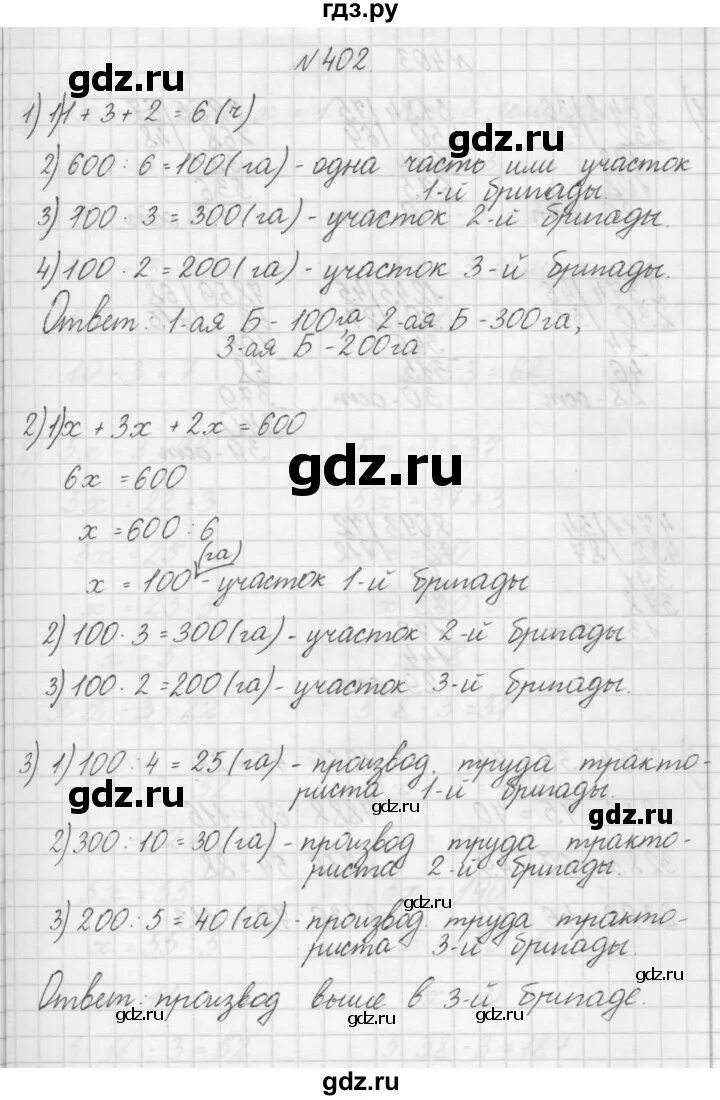 гдз.ру
№402
gdz.ru
1) 1) 1 + 3 + 2 = 6 (ч)
gdz.ru
2) 600 : 6 = 100 (га) - одна часть или участок
1-й бригады.
3) 100 · 3 = 300 (га) - участок 2-й бригады.
4) 100 · 2 = 200 (га) - участок 3-й бригады.
Ответ: 1-ая Б - 100га, 2-ая Б - 300га,
3-ая Б - 200га.
2) 1) x + 3x + 2x = 600
gdz.ru
6x = 600
x = 600 : 6
(га)
x = 100 - участок 1-й бригады
2) 100 · 3 = 300 (га) - участок 2-й бригады
3) 100 · 2 = 200 (га) - участок 3-й бригады.
3) 1) 100 : 4 = 25 (га) - производ. труда тракто-
риста 1-й бригады.
gdz.ru
gdz.ru
gdz.ru
2) 300 : 10 = 30 (га) - производ труда тракто-
риста 2-й бригады.
gdz.ru
3) 200 : 5 = 40 (га) - производ. труда тракто-
риста 3-й бригады.
gdz.ru
Ответ: производ выше в 3-й бригаде.
gdz.ru
gdz.ru
gdz.ru
gdz.ru